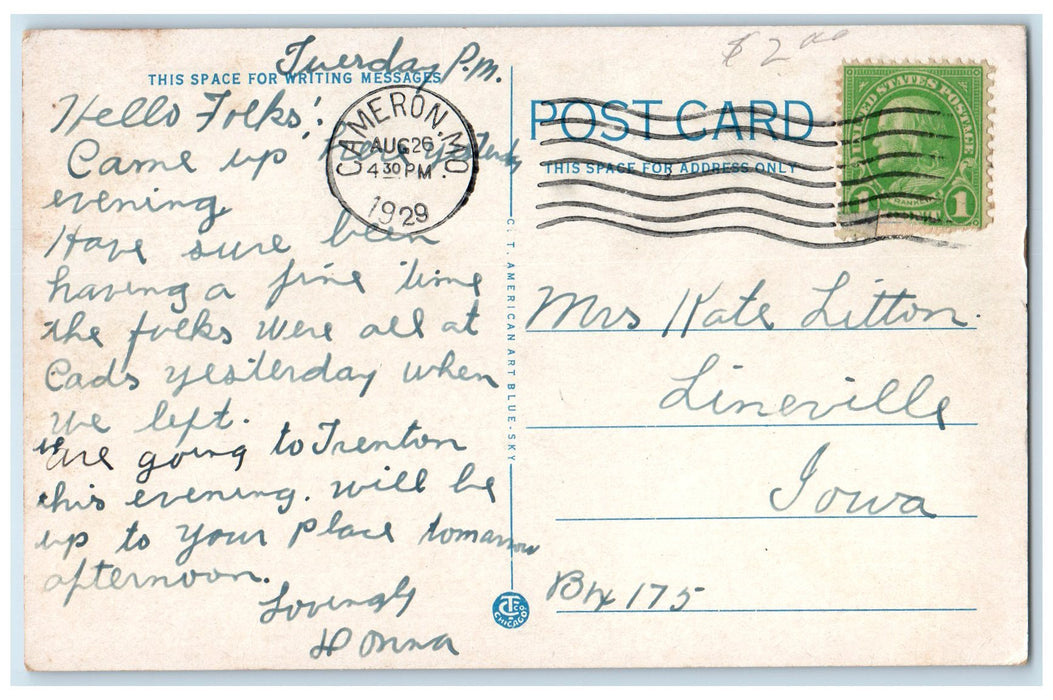 $2.00
Tuesday P.M.
THIS SPACE FOR WRITING MESSAGES
Hello Folks!
Came up here yesterday
evening.
Have sure been
having a fine time
the folks were all at
Cads yesterday when
we left.
are going to Trenton
this evening. will be
up to your place tomarrow
afternoon.
Lovingly
Donna
CAMERON, MO.
AUG 26
4 30 PM
1929
C. T. AMERICAN ART BLUE-SKY
CHICAGO
POST CARD
THIS SPACE FOR ADDRESS ONLY
UNITED STATES POSTAGE
FRANKLIN
1
Mrs Kate Litton.
Lineville
Iowa
Bx 175